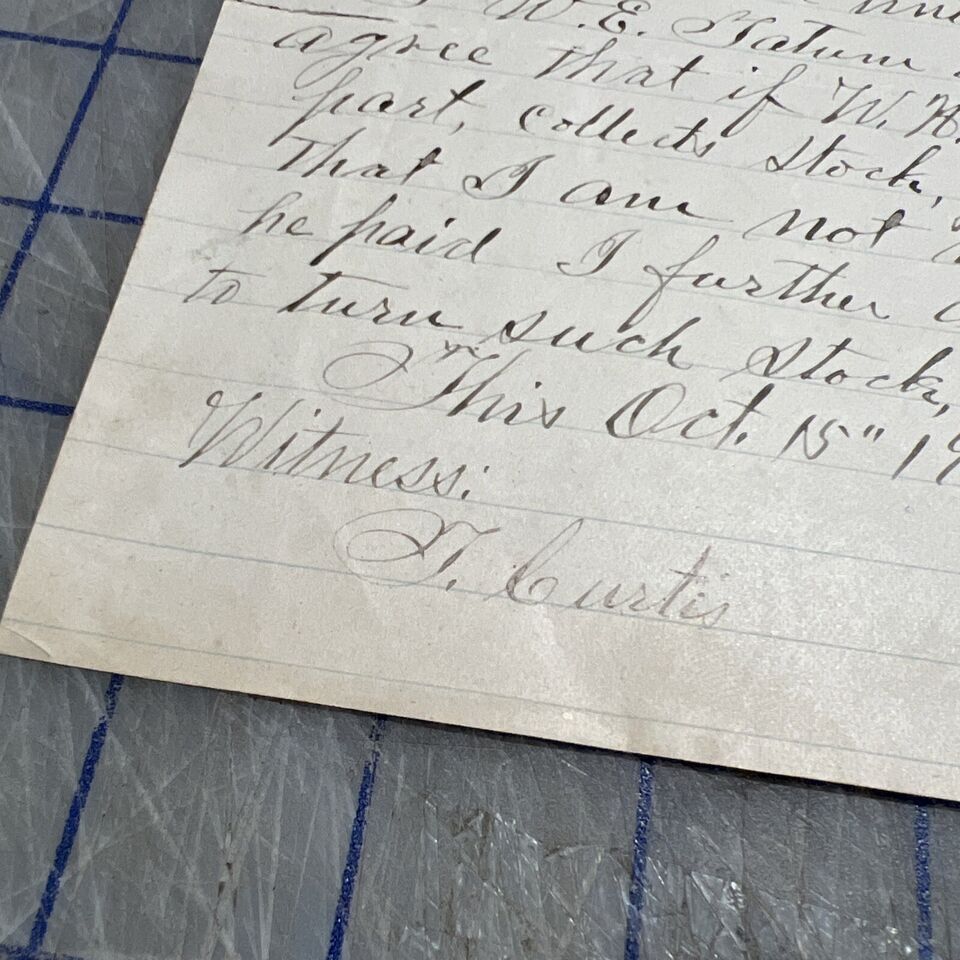 W. E. Tatum
agree that if W. H.
part, collects stock,
that I am not
he paid I further
to turn such stock,
This Oct. 15" 19
Witness:
T. Curtis